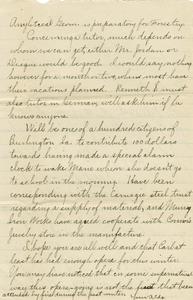 Analytical Geom. is preparatory for Forestry.
Concerning a tutor, much depends on
whom we can get, either Mr. Jordan or
Deague would be good. I would say nothing
however for a month or two, when most have
their vacations planned. Kenneth R must
also tutor in German, will ask him if he
knows anyone.
Will be one of a hundred citizens of
Burlington Ia. to contribute 100 dollars
towards having made a special alarm
clock to wake Marie when she doesn't go
to school in the morning. Have been
corresponding with the Carnegie steel trust
regarding a supply of material, and Murray
Iron Works have agreed cooperate with
Jewelry store in the manufacture.
I hope you are all well and that Carl at
least has had enough opera for this winter.
You may have noticed that in some supernatural
way this opera going is not the fact that has
attended by first during the past winter. Your